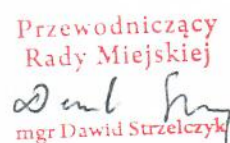 Przewodniczący
Rady Miejskiej
mgr Dawid Strzelczyk